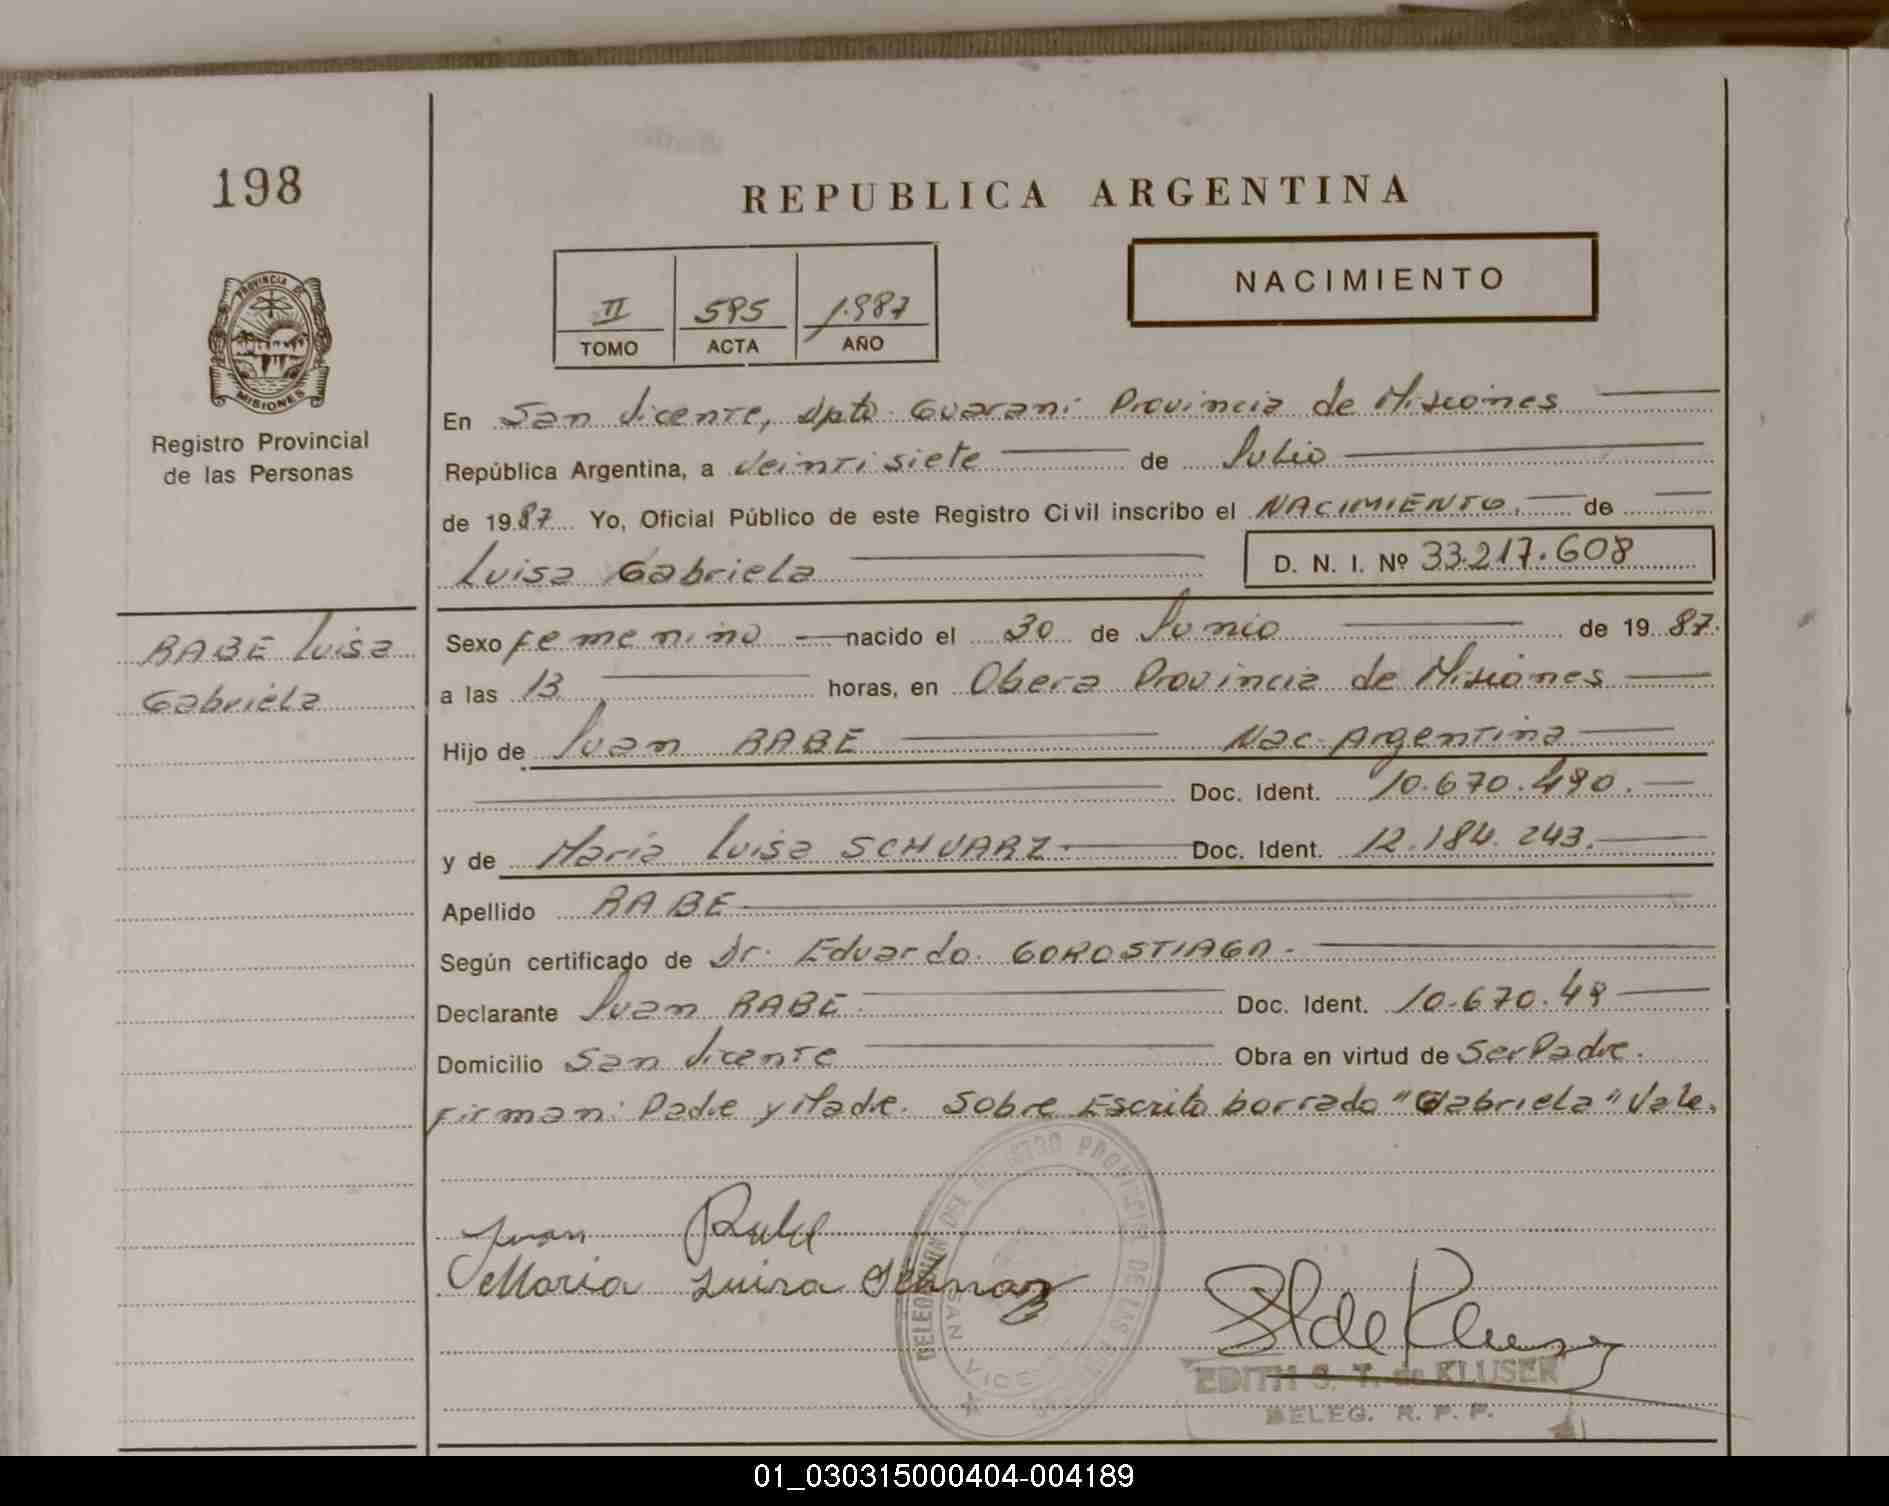 198
REPUBLICA ARGENTINA
NACIMIENTO
II 595 1.987
TOMO ACTA AÑO
PROVINCIA DE
MISIONES
Registro Provincial
de las Personas
En San Vicente, Dpto. Guaraní Provincia de Misiones
República Argentina, a Veintisiete de Julio
de 1987 Yo, Oficial Público de este Registro Civil inscribo el NACIMIENTO. de
Luisa Gabriela D. N. I. Nº 33.217.608
RABE Luisa
Gabriela
Sexo Femenino nacido el 30 de Junio de 1987.
a las 13 horas, en Obera Provincia de Misiones
Hijo de Juan RABE Nac. Argentina
Doc. Ident. 10.670.490.
y de María Luisa SCHVARZ Doc. Ident. 12.184.243.
Apellido RABE
Según certificado de Dr. Eduardo GOROSTIAGA.
Declarante Juan RABE Doc. Ident. 10.670.49
Domicilio San Vicente Obra en virtud de Ser Padre.
Firman: Padre y Madre. Sobre Escrito borrado "Gabriela" Vale.
Juan
Maria Luisa
EDITH S. T. de KLUSER
DELEG. R. P. P.
01_030315000404-004189